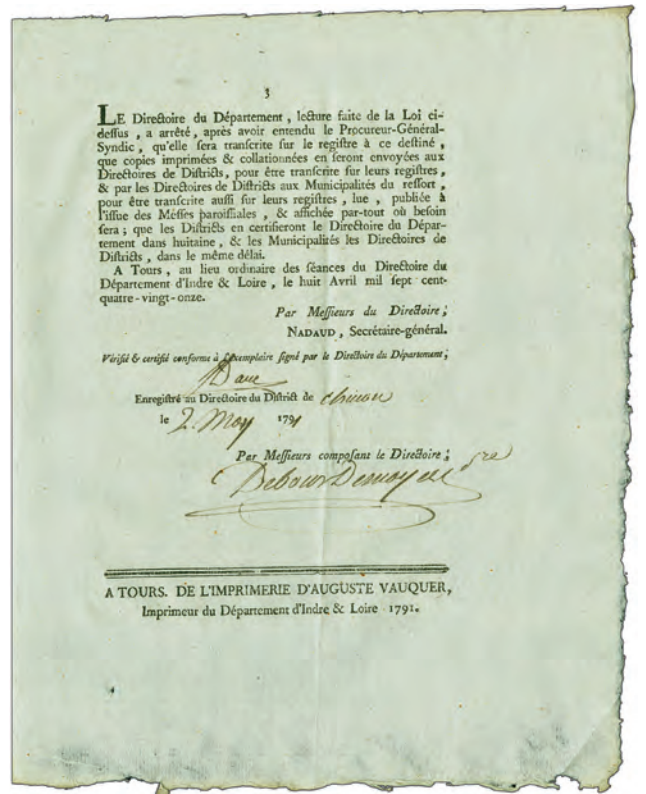 3
LE Directoire du Département, lecture faite de la Loi ci-
deſſus, a arrêté, après avoir entendu le Procureur-Général-
Syndic, qu'elle ſera tranſcrite ſur le regiſtre à ce deſtiné,
que copies imprimées & collationnées en ſeront envoyées aux
Directoires de Diſtricts, pour être tranſcrite ſur leurs regiſtres,
& par les Directoires de Diſtricts aux Municipalités du reſſort,
pour être tranſcrite auſſi ſur leurs regiſtres, lue, publiée à
l'iſſue des Meſſes paroiſſiales, & affichée par-tout où beſoin
ſera; que les Diſtricts en certifieront le Directoire du Dépar-
tement dans huitaine, & les Municipalités les Directoires de
Diſtricts, dans le même délai.
A Tours, au lieu ordinaire des ſéances du Directoire du
Département d'Indre & Loire, le huit Avril mil ſept cent-
quatre-vingt-onze.
Par Meſſieurs du Directoire;
NADAUD, Secrétaire-général.
Vérifié & certifié conforme à l'exemplaire ſigné par le Directoire du Département;
Enregiſtré au Directoire du Diſtrict de chinon
le 2. May 1791
Par Meſſieurs compoſant le Directoire;
A TOURS. DE L'IMPRIMERIE D'AUGUSTE VAUQUER,
Imprimeur du Département d'Indre & Loire 1791.